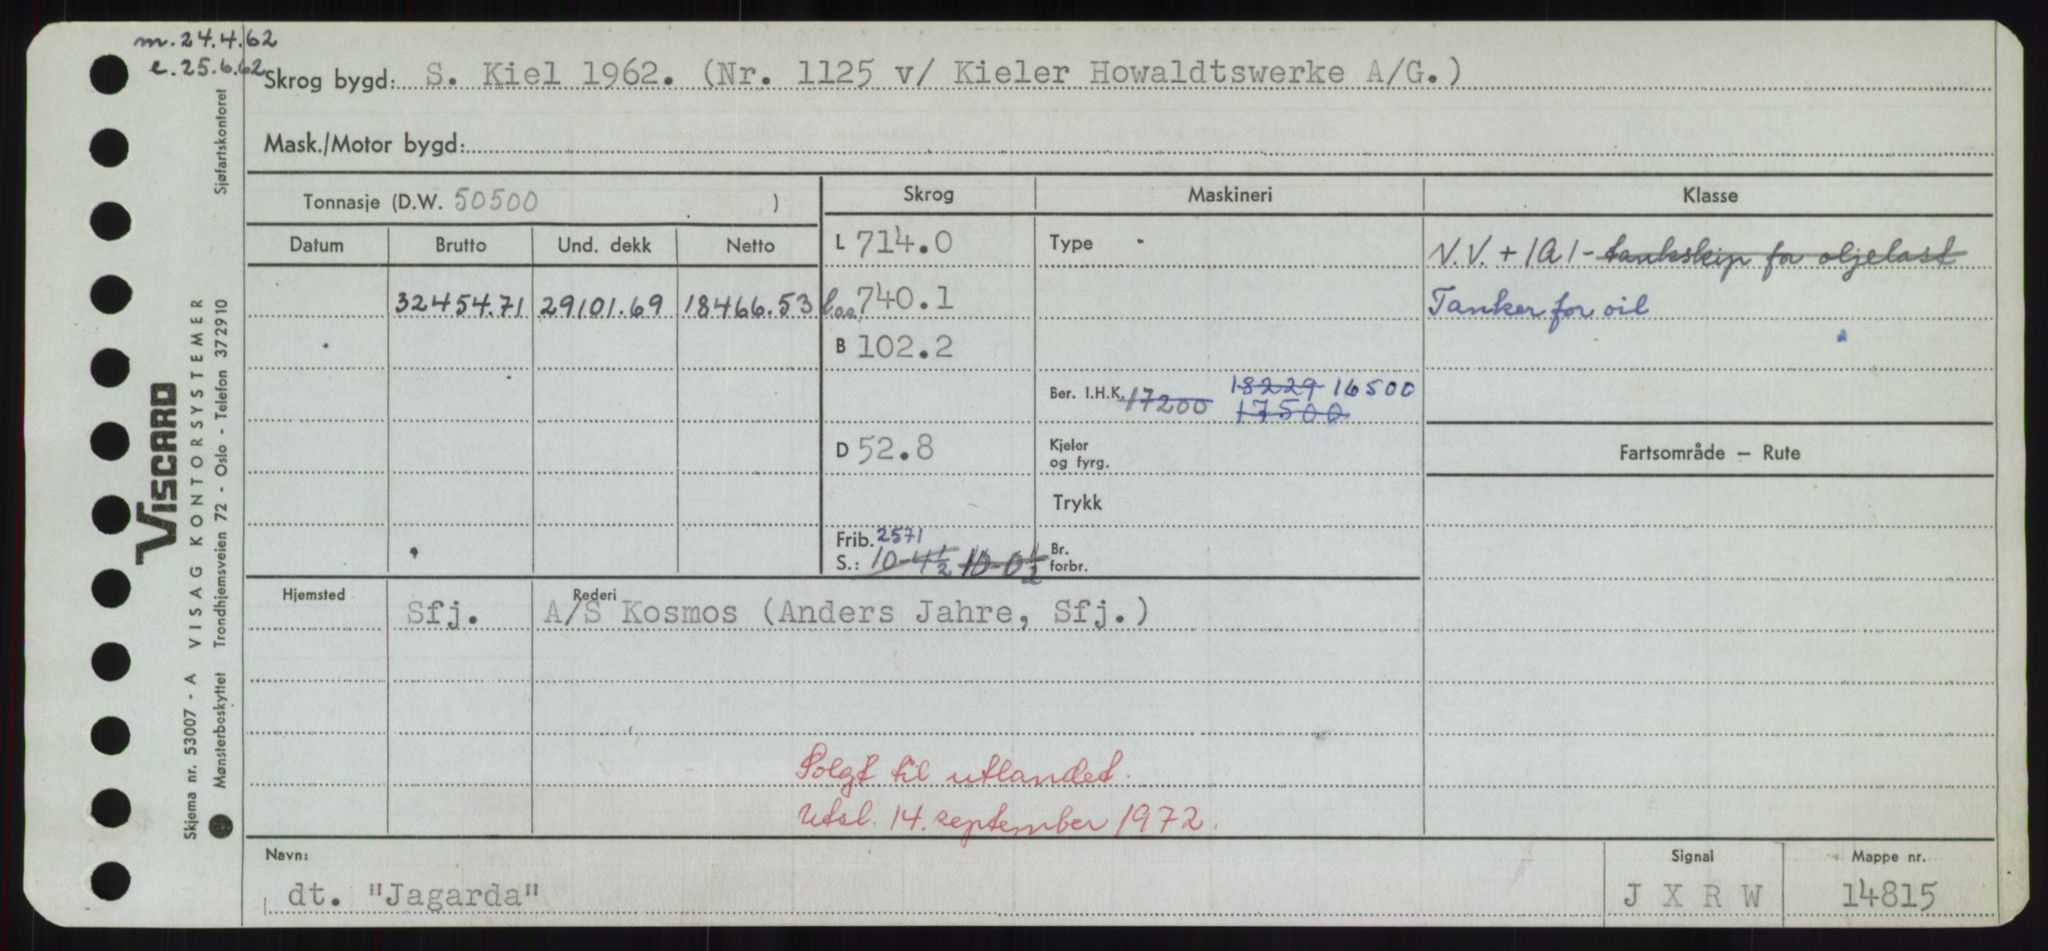 m. 24.4.62
e. 25.6.62
Skrog bygd: S. Kiel 1962. (Nr. 1125 v/ Kieler Howaldtswerke A/G.)
Mask./Motor bygd:
Tonnasje (D.W. 50500 )
Skrog
Maskineri
Klasse
Datum
Brutto
Und. dekk
Netto
32454.71
29101.69
18466.53
L 714.0
l.oa. 740.1
B 102.2
D 52.8
Frib. 2571
S.: 10-4½ 10-0½
Type
Ber. I.H.K. 17200 18229 16500
17500
Kjeler
og fyrg.
Trykk
Br.
forbr.
N.V. + 1A1 - tankskip for oljelast
Tanker for oil
Fartsområde – Rute
Hjemsted
Sfj.
Rederi
A/S Kosmos (Anders Jahre, Sfj.)
Solgt til utlandet.
Utsl. 14. september 1972.
Navn:
dt. "Jagarda"
Signal
J X R W
Mappe nr.
14815
VISCARD
Skjema nr. 53007 - A VISAG KONTORSYSTEMER
Mønsterbeskyttet Trondhjemsveien 72 - Oslo - Telefon 372910 Sjøfartskontoret